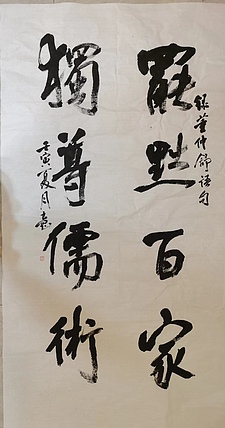 録董仲舒語句
罷黜百家
獨尊儒術
壬寅夏月